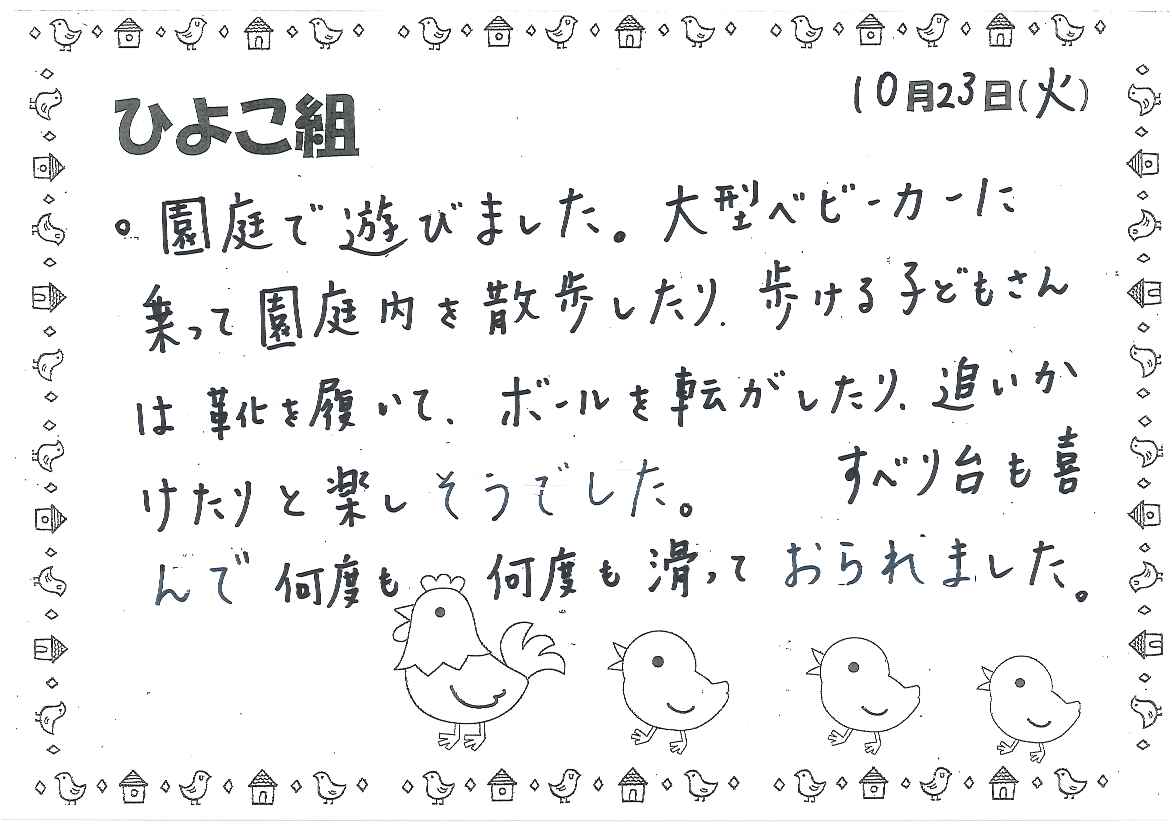 ひよこ組
10月23日(火)
。園庭で遊びました。大型ベビーカーに
乗って園庭内を散歩したり、歩ける子どもさん
は靴を履いて、ボールを転がしたり、追いか
けたりと楽しそうでした。 すべり台も喜
んで何度も 何度も滑っておられました。